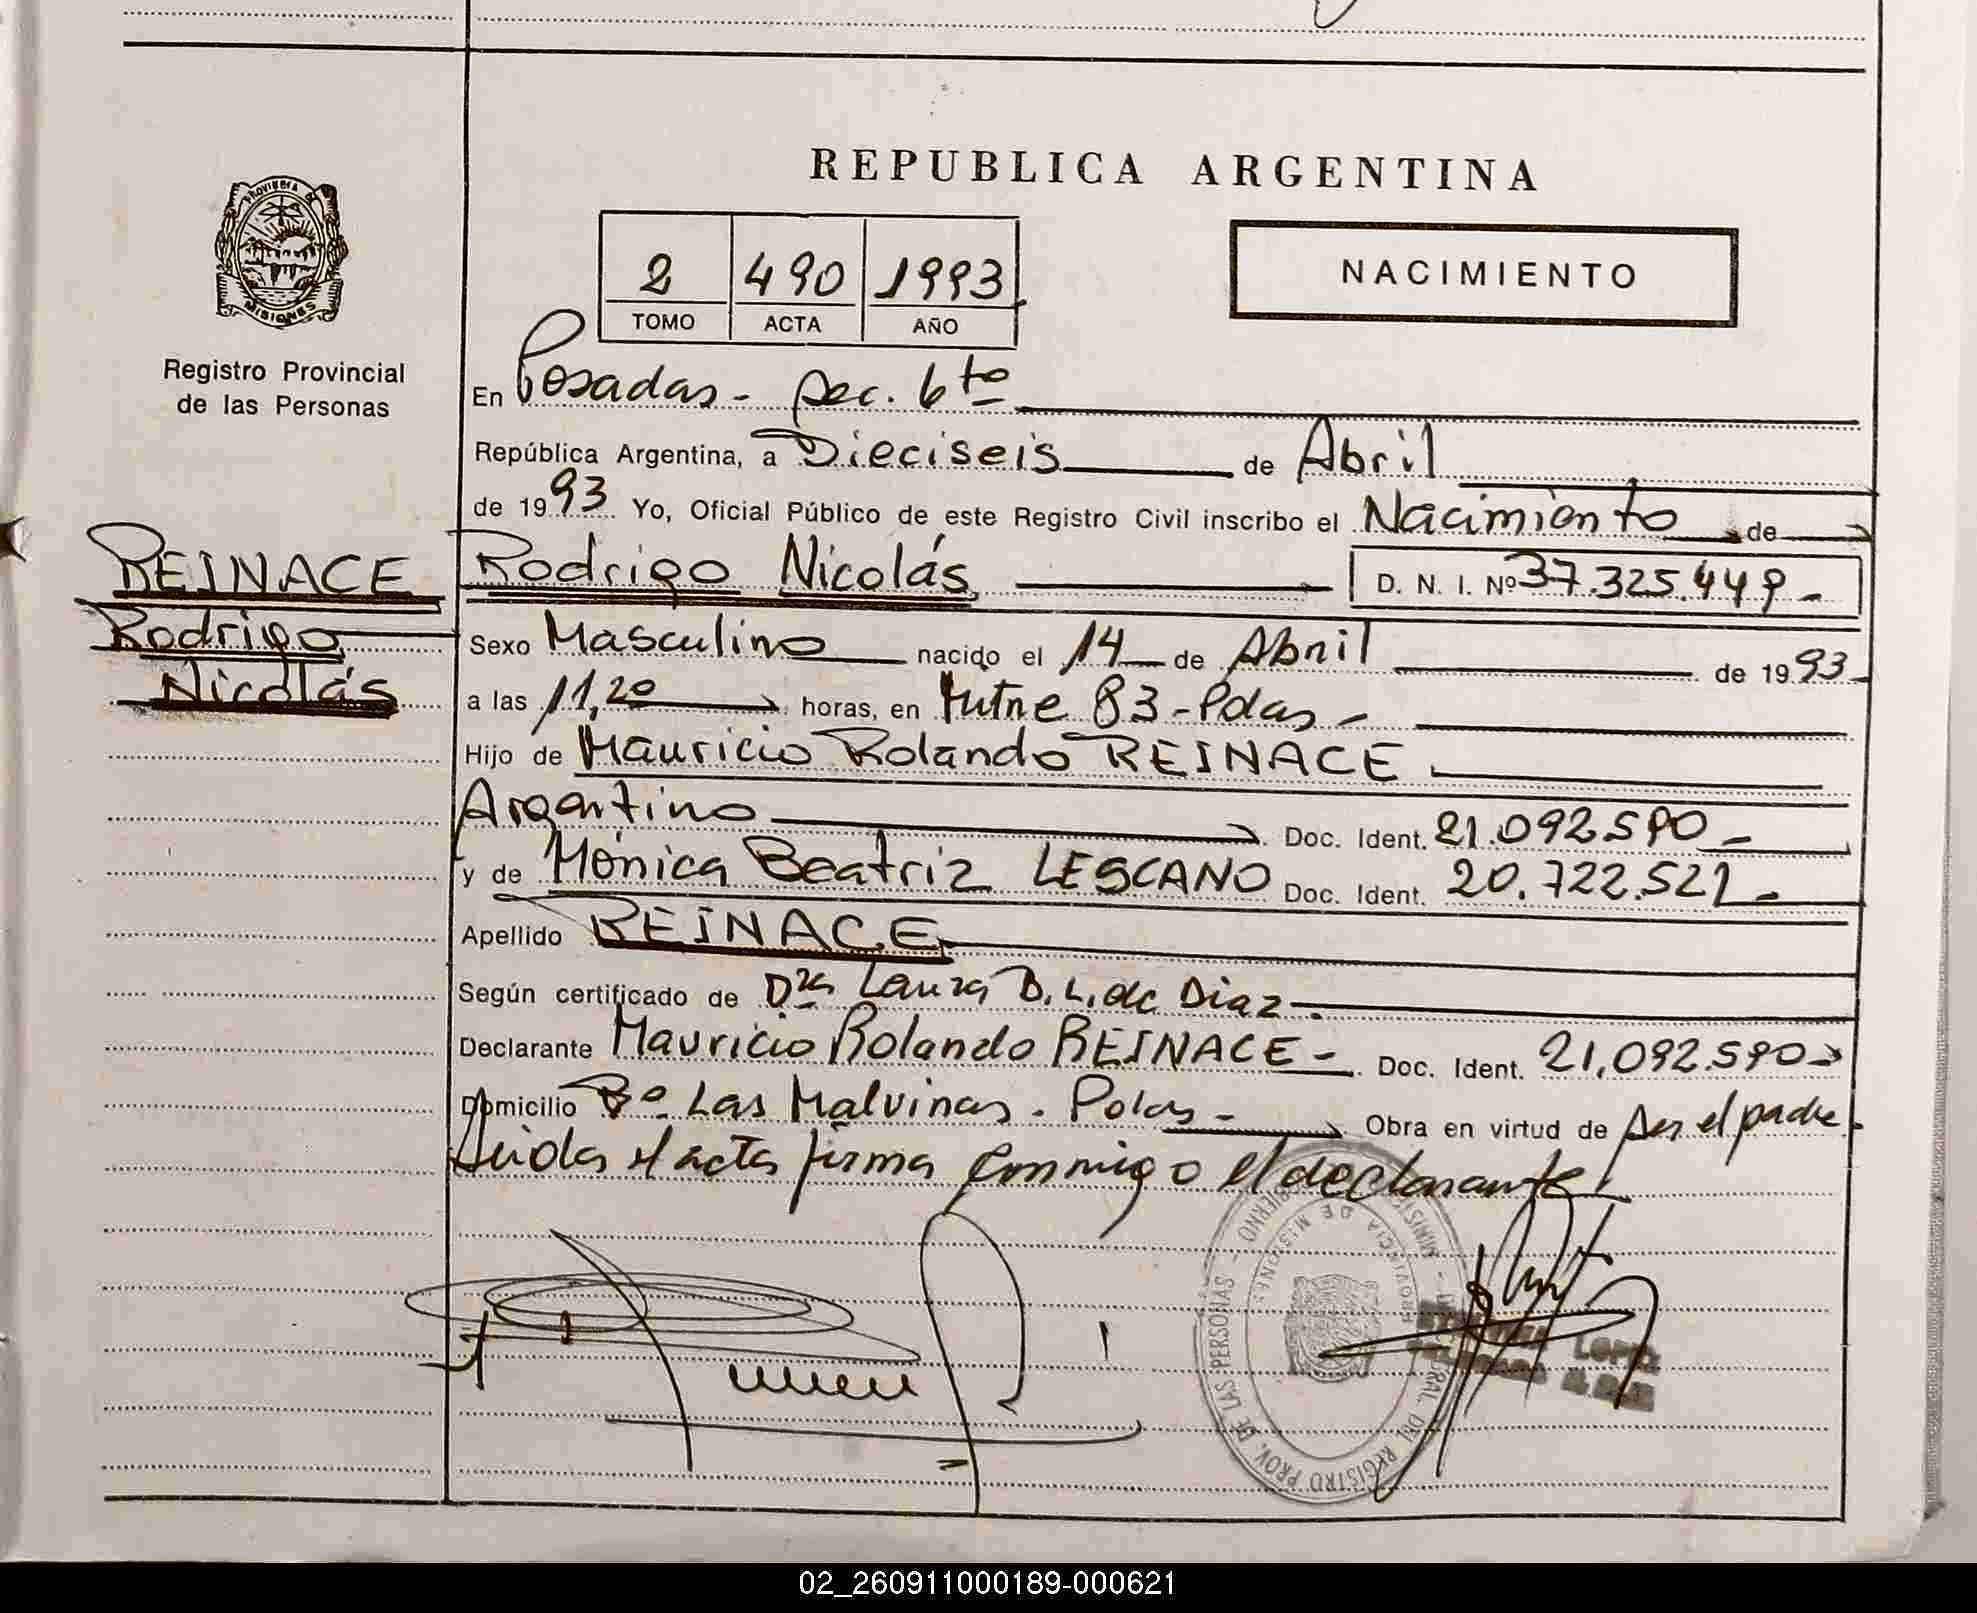 REPUBLICA ARGENTINA
PROVINCIA DE
MISIONES
Registro Provincial
de las Personas
2 490 1993
TOMO ACTA AÑO
NACIMIENTO
En Posadas - Sec. 6to
República Argentina, a Dieciseis de Abril
de 1993 Yo, Oficial Público de este Registro Civil inscribo el Nacimiento de
REINACE
Rodrigo
Nicolás
Rodrigo Nicolás D. N. I. Nº 37.325.449 -
Sexo Masculino nacido el 14 de Abril de 1993
a las 11,20 horas, en Mitre 83 - Pdas -
Hijo de Mauricio Rolando REINACE
Argentino Doc. Ident. 21.092.590 -
y de Mónica Beatriz LESCANO Doc. Ident. 20.722.521 -
Apellido REINACE
Según certificado de Dra Laura B. L. de Diaz.
Declarante Mauricio Rolando REINACE - Doc. Ident. 21.092.590
Domicilio Bº Las Malvinas - Pdas - Obra en virtud de ser el padre
leida el acta firma conmigo el declarante
LOPEZ
02_260911000189-000621